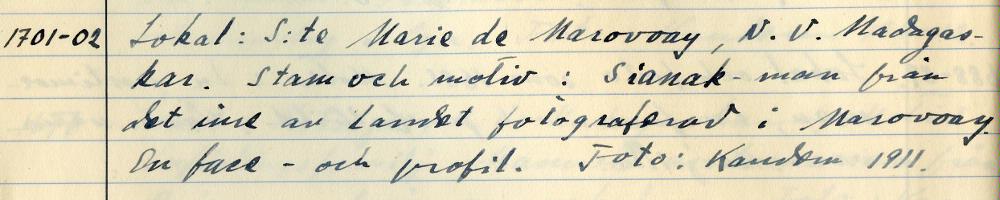 1701-02 Lokal: S:te Marie de Marovoay, N.V. Madagas-
kar. Stam och motiv: Sianak-man från
det inre av landet fotograferad i Marovoay.
En face- och profil. Foto: Kaudern 1911.